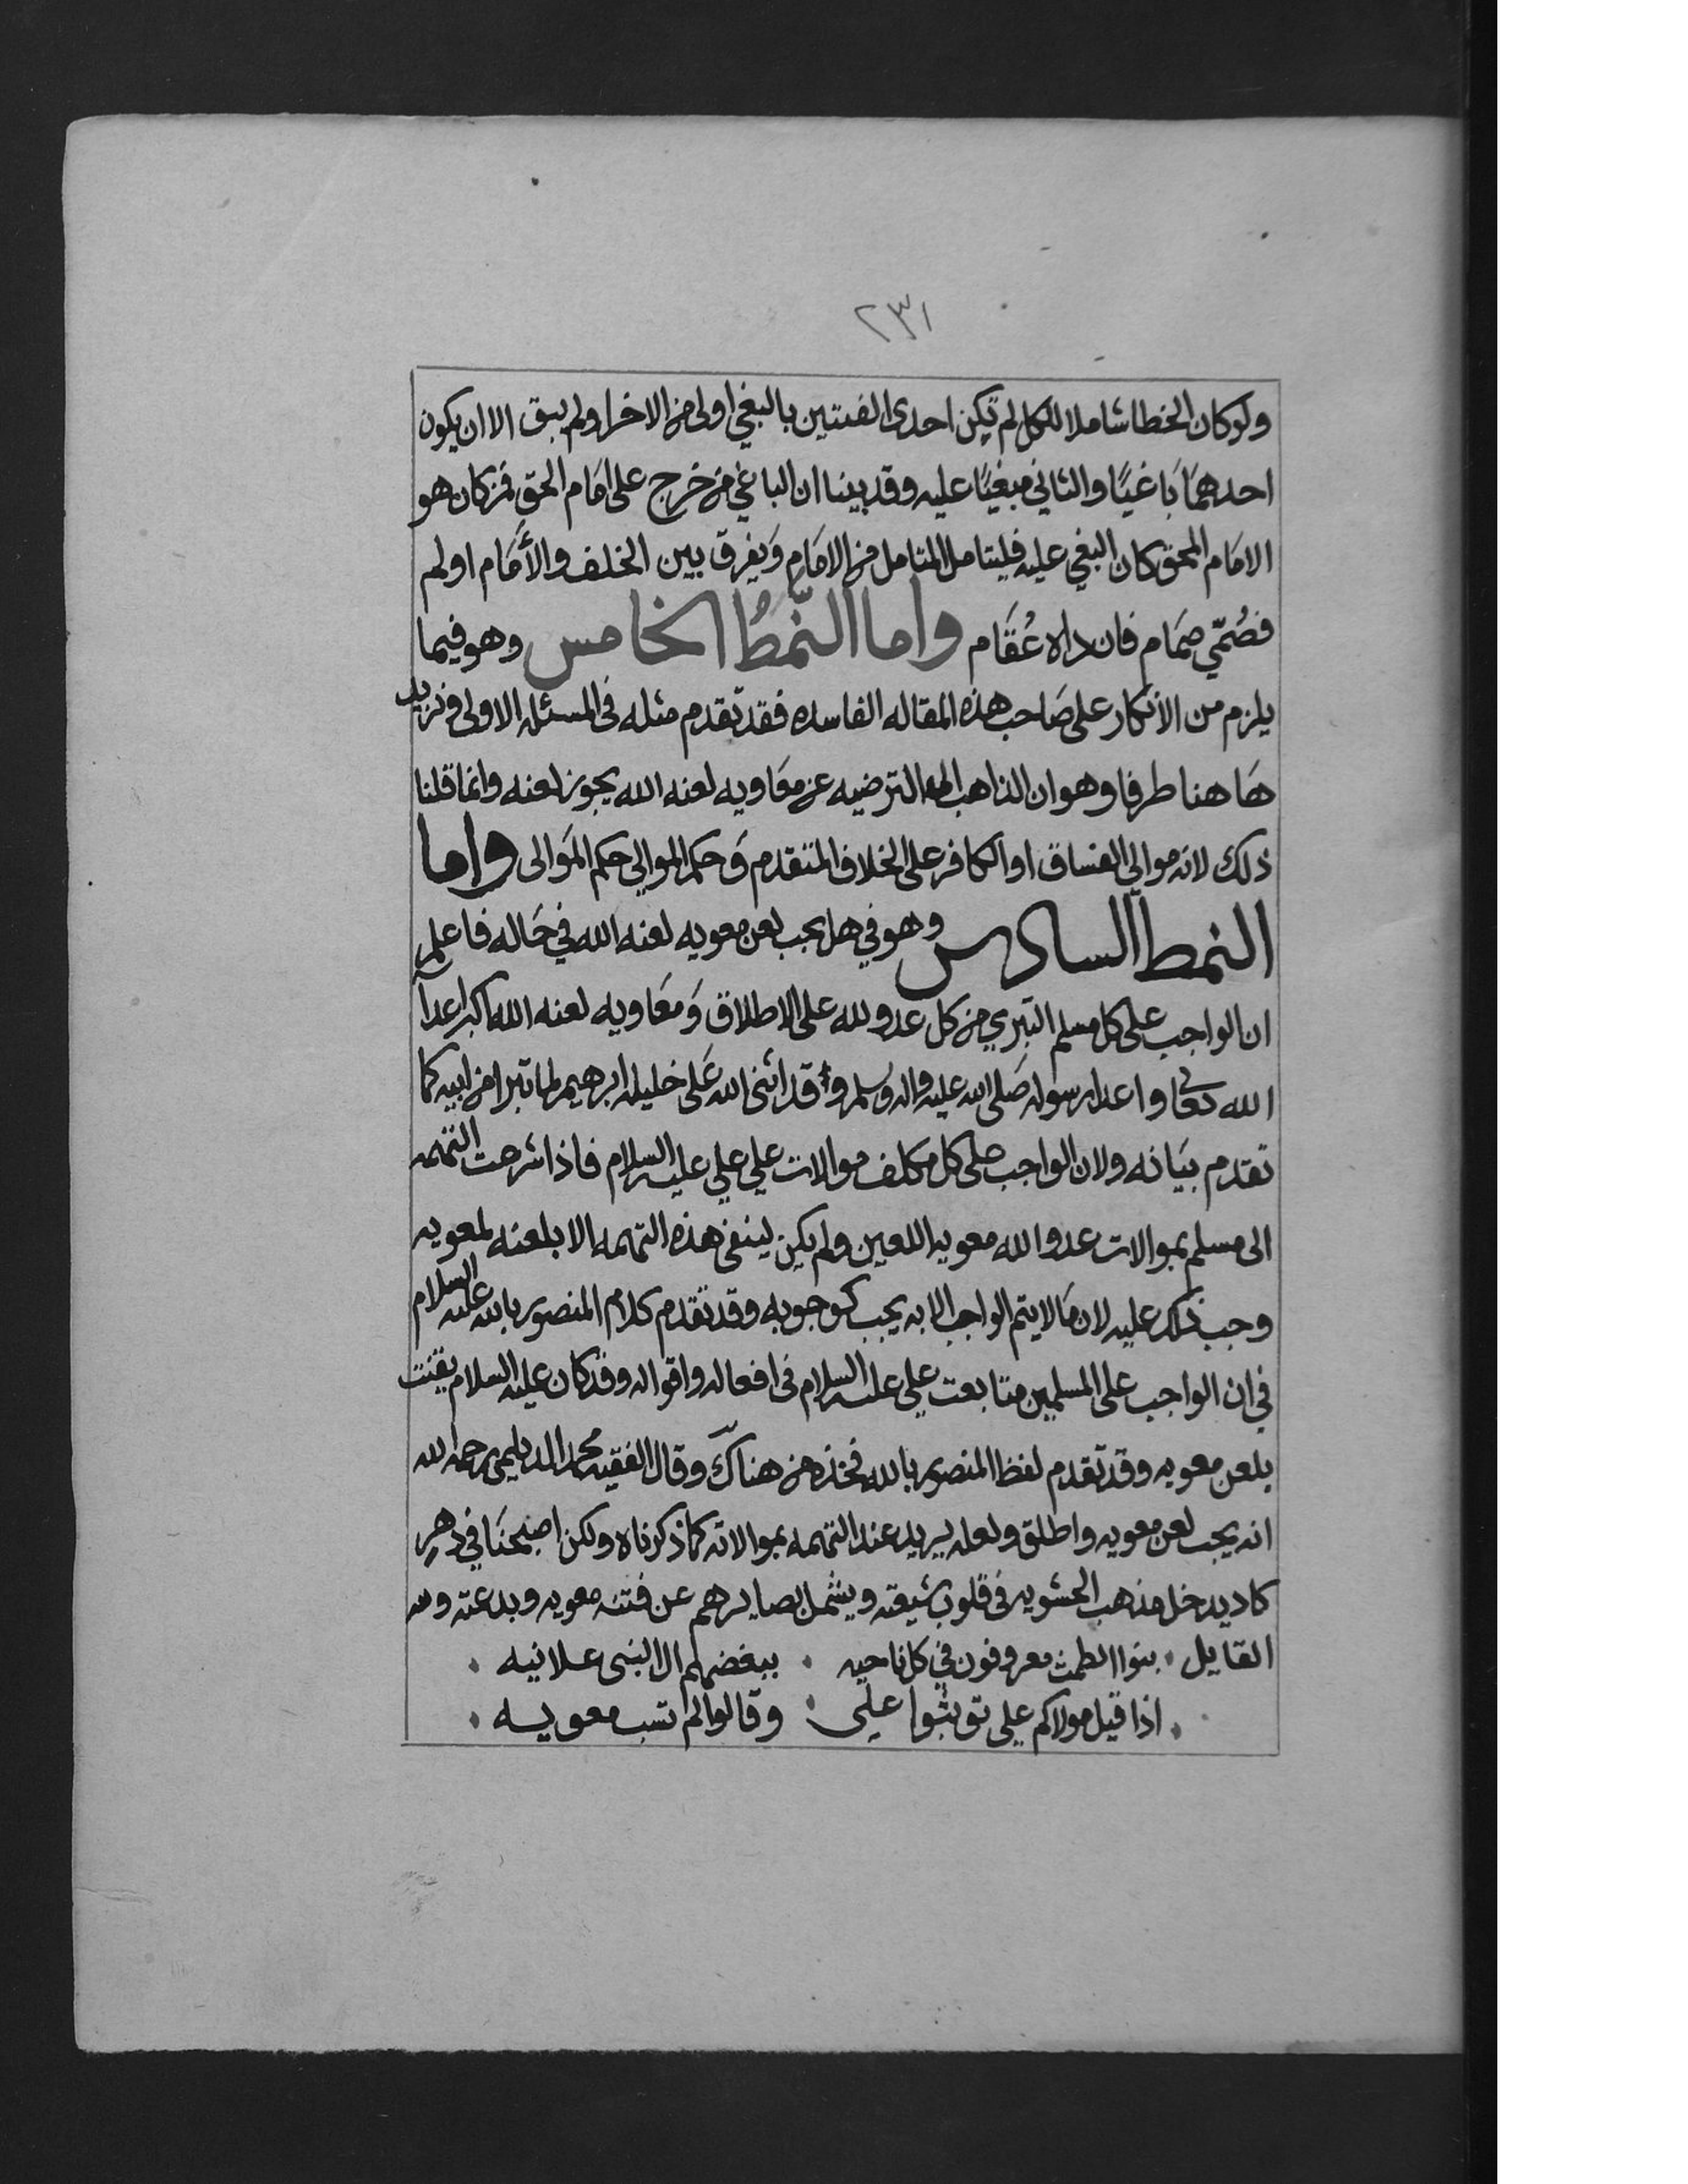 ٢٣١
ولو كان الخطا شاملا للكل لم تكن احدى الفئتين بالبغي اولى من الاخرا ولم يبق الا ان يكون
احدهمَا بَاغيًا والثاني مبغيًا عليه وقد بينا ان الباغي من خرج على امَام الحق فمن كان هو
الامَام المحق كان البغي عليه فليتامل المتامل من الامَام وَيفرق بين الخلف والأمَام اولهم
فصُمّي صمَام فان داه عُقَام واما النّمطُ الخامس وهو فيما
يلزم من الأنكار على صَاحب هذه المقاله الفاسده فقد تقدم مثله فى المسئله الاولى ونزيد
هَاهنا طرفا وهو ان الذاهب الى الترضيه عن معَاويه لعنه الله يجوز لعنه وانما قلنا
ذلك لانه موالي الفساق او الكافر على الخلاف المتقدم وَحكم الموالي حكم المَوالى واما
النمط السادس وهو في هل يجب لعن معويه لعنه الله في حَاله فاعلم
ان الواجب على كل مسلم التبري من كل عدو لله على الاطلاق وَمعَاويه لعنه الله اكبر اعدآ
الله تعالى واعدا رسوله صَلى الله عليه واله وسلم وقد اثنى الله عَلى خليله ابرهيم لما تبرا من ابيه كما
تقدم بيَانه ولان الواجب على كل مكلف موالات علي علي عليه السلام فاذا شرعت التهمه
الى مسلم بموالات عدو الله معويه اللعين ولم يكن ينفي هذه التهمه الا بلعنه لمعويه
وجب ذلك عليه لان مَا لا يتم الواجب الا به يجب كوجوبه وقد تقدم كلام المنصور بالله عليه السلام
في ان الواجب على المسلمين متابعت علي عليه السلام فى افعاله واقواله وقد كان عليه السلام يقنت
بلعن معويه وقد تقدم لفظ المنصور بالله فخذه من هناك وقال الفقيه محمد الديلمي رحمه الله
انه يجب لعن معويه واطلق ولعله يريد عند التهمه بموالاته كما ذكرناه ولكن اصبحنَا في دهرٍ
كاد يدخل مذهب الحشويه فى قلوب شيعته ويشمل بصايرهم عن فتنه معويه وبدعته ولله
القايل . بنوا الطمث معروفون في كل ناحيه . ببغضهم ال النبى علانيه .
. اذا قيل مولاكم علي توثبوا علي . وقالوا لم تسب معويه .